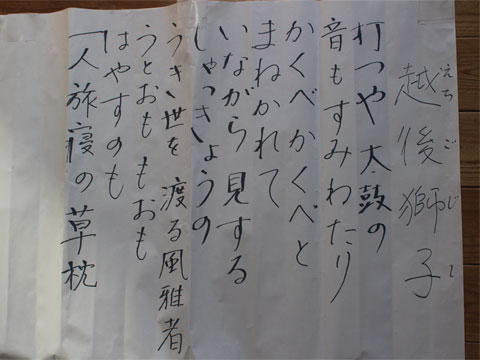 越後獅子
えちごじし
打つや太鼓の
音もすみわたり
かくべかくべと
まねかれて
いながら見する
しゃっきょうの
うき世を渡る風雅者
うとおももおも
はやすのも
一人旅寝の草枕